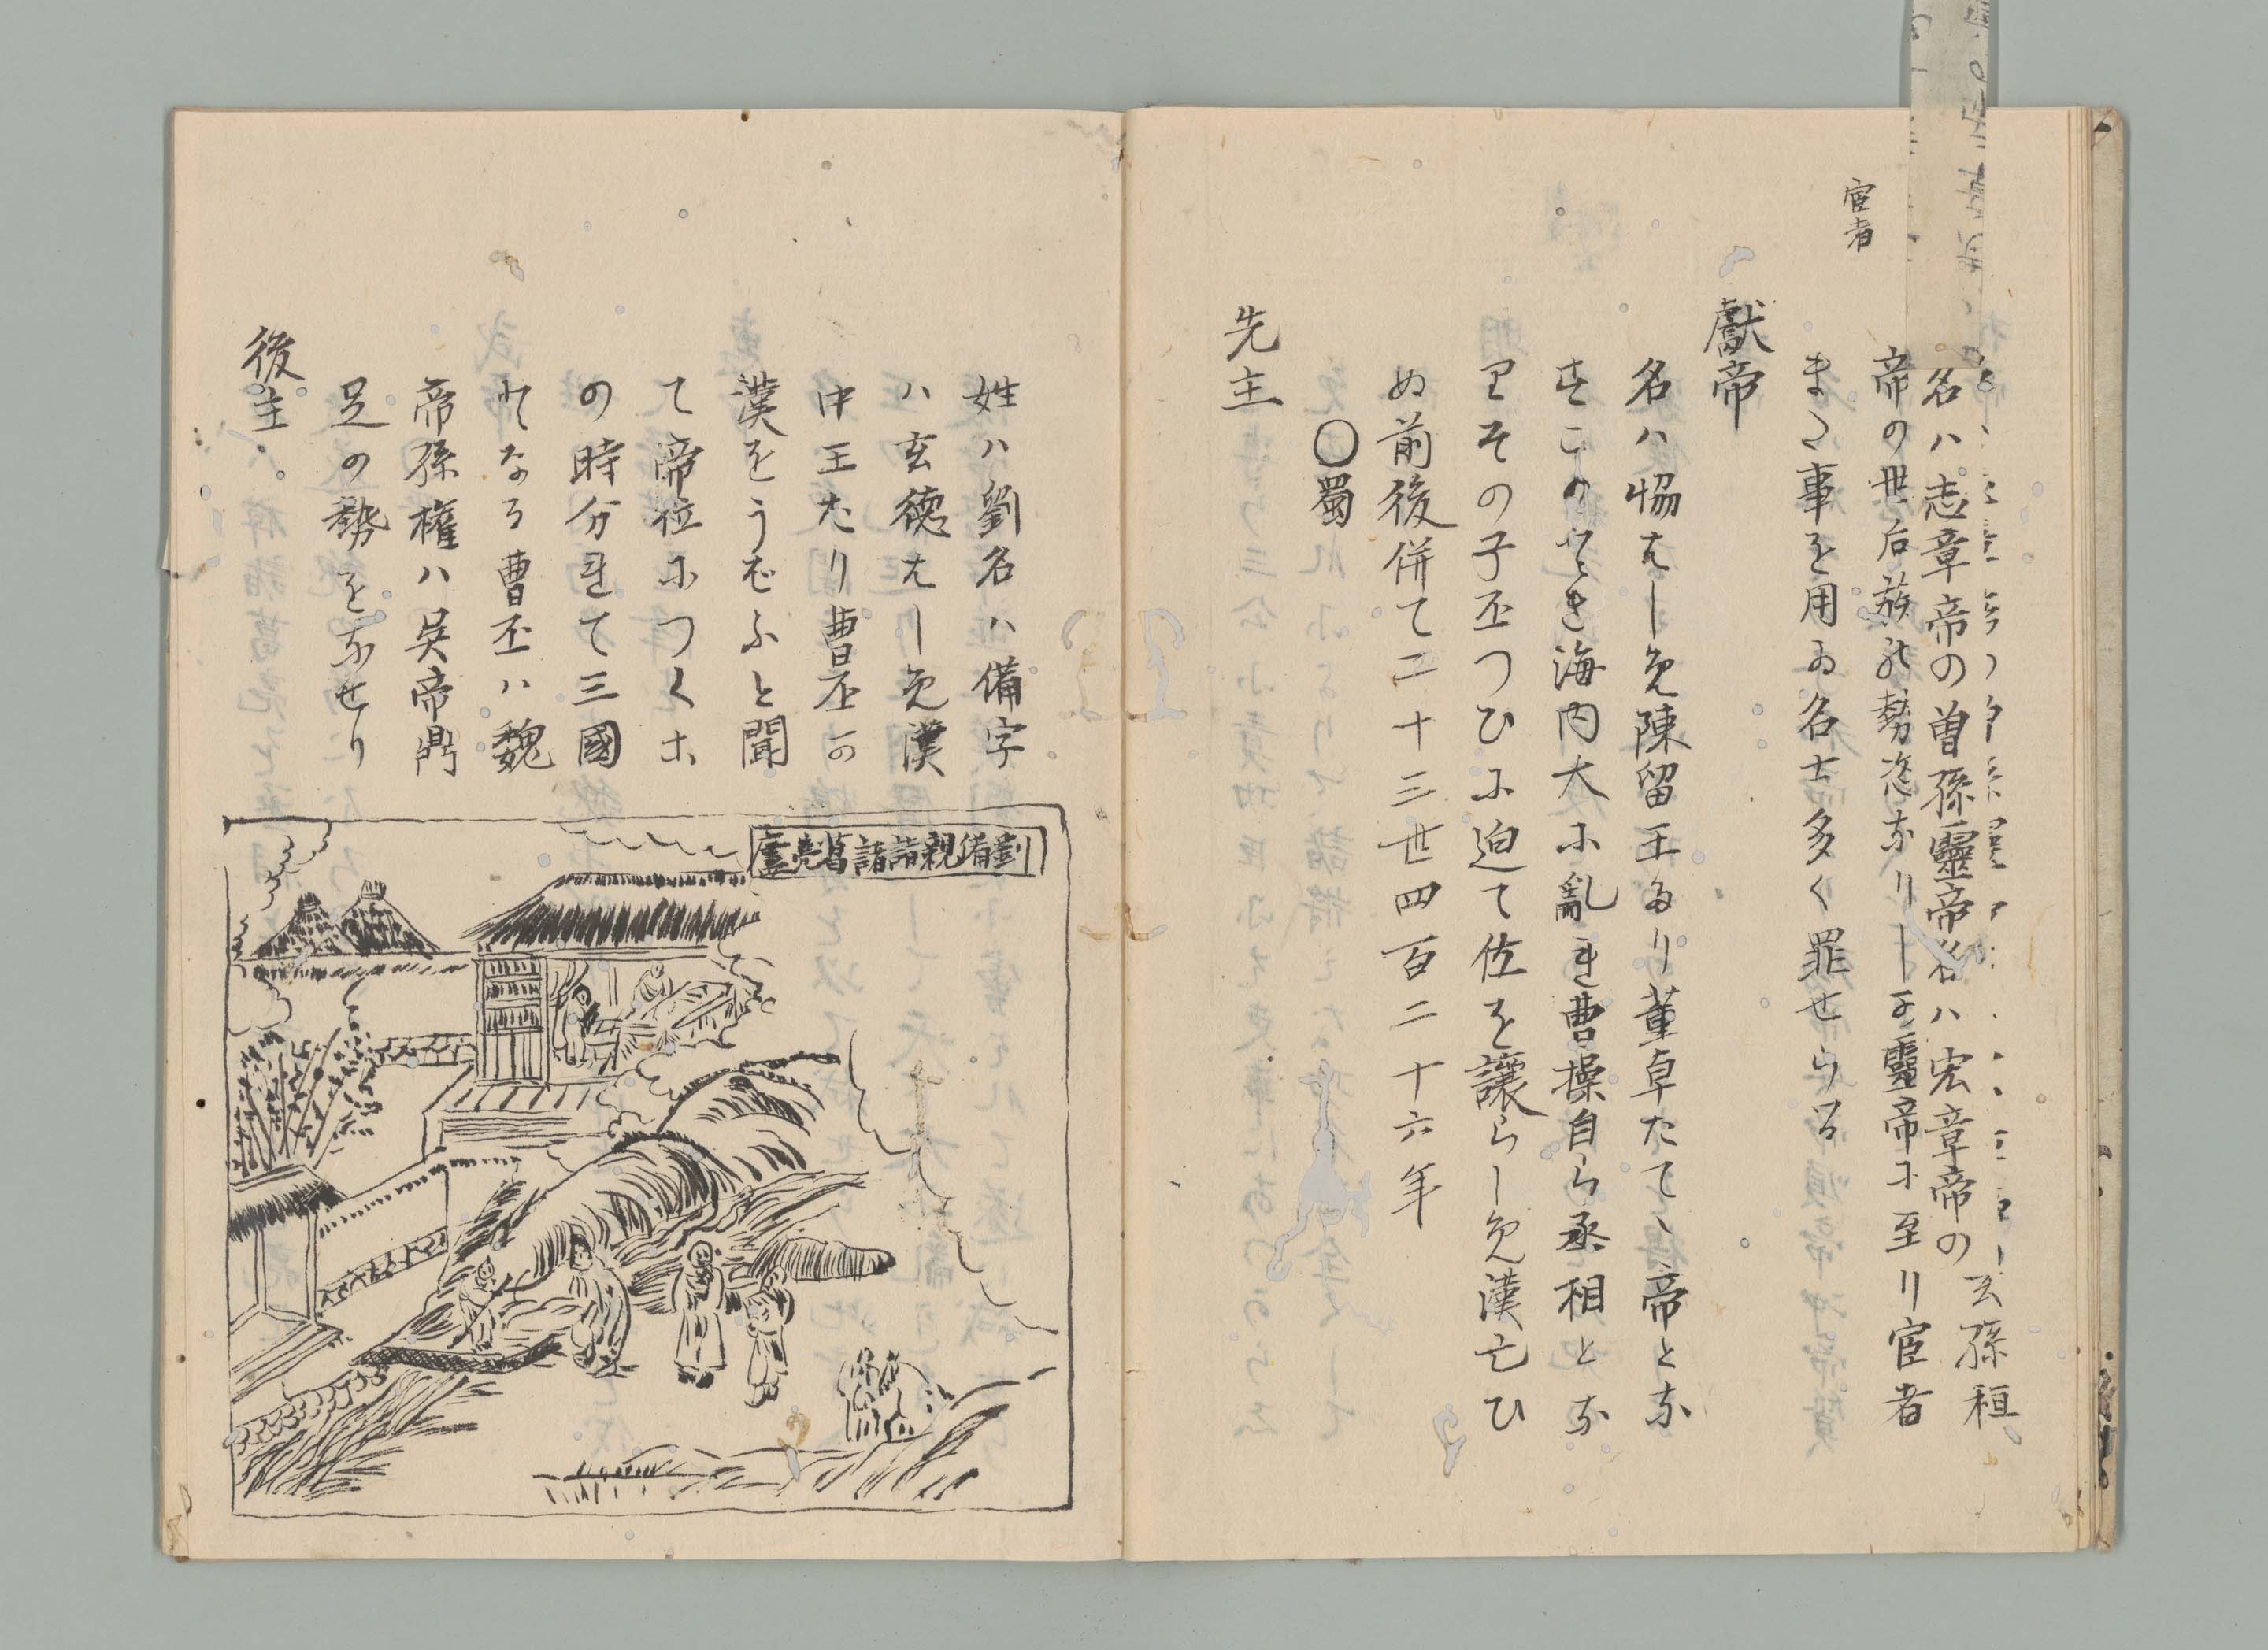 宦者
名ハ志章帝の曽孫靈帝名ハ宏章帝の玄孫桓
帝の世后族の勢恣なりし可靈帝に至リ宦者
また事を用ゐ名士多く罪せらる
獻帝
名ハ恊はしめ陳留王たり董卓たてゝ帝とな
すこのとき海内大に亂れ曹操自ら丞相とな
りその子丕つひに迫て位を讓らしめ漢亡ひ
ぬ前後併て二十三世四百二十六年
〇蜀
先主
姓ハ劉名ハ備字
ハ玄徳はしめ漢
中王たり曹丕の
漢をうばふと聞
て帝位につくこ
の時分れて三國
となる曹丕ハ魏
帝孫權ハ吳帝鼎
足の勢をなせり
劉備親詣諸葛亮廬
後主